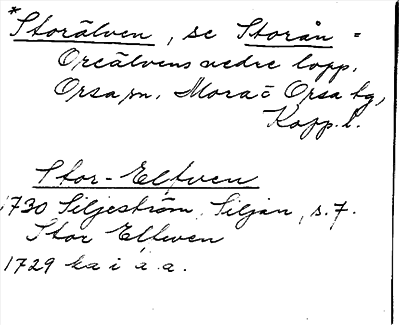 *Storälven, se Storån =
Oreälvens nedre lopp.
Orsa sn, Mora o Orsa tg,
Kopp. l.
Stor-Elfven
1730 Siljeström, Siljan, s. 7.
Stor Elfwen
1729 ka i a. a.